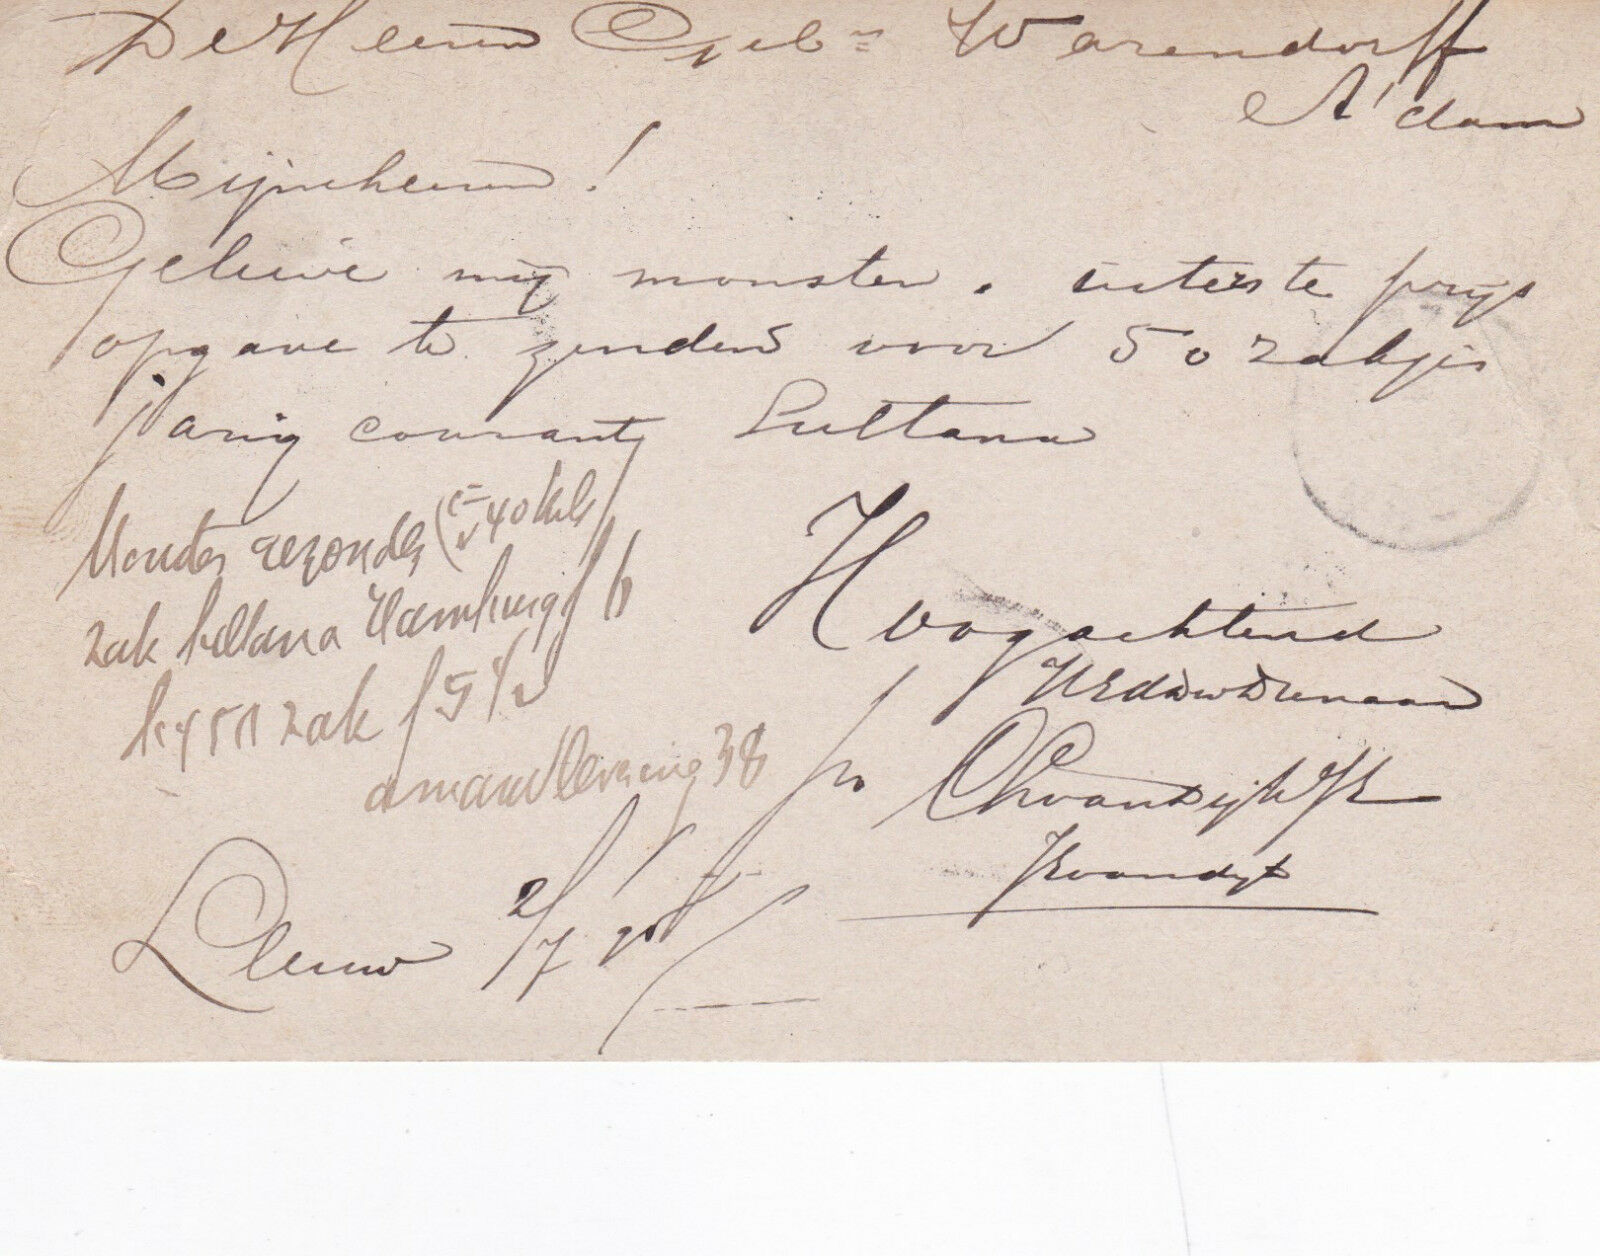 De Heeren Gebrs Warendorff
A'dam
Mijnheeren!
Gelieve mij monster. uiterste prijs
opgave te zenden voor 50 zakjes
jarig courant Sultana
Monster gezonden 40 Kilo
zak Sultana Hamburg f 16
bij 50 zak f 15 1/2
amandlevering 38
Hoogachtend
UEdDwDienaar
po ChvanDijk
JKvandijk
Leeuw 2/7